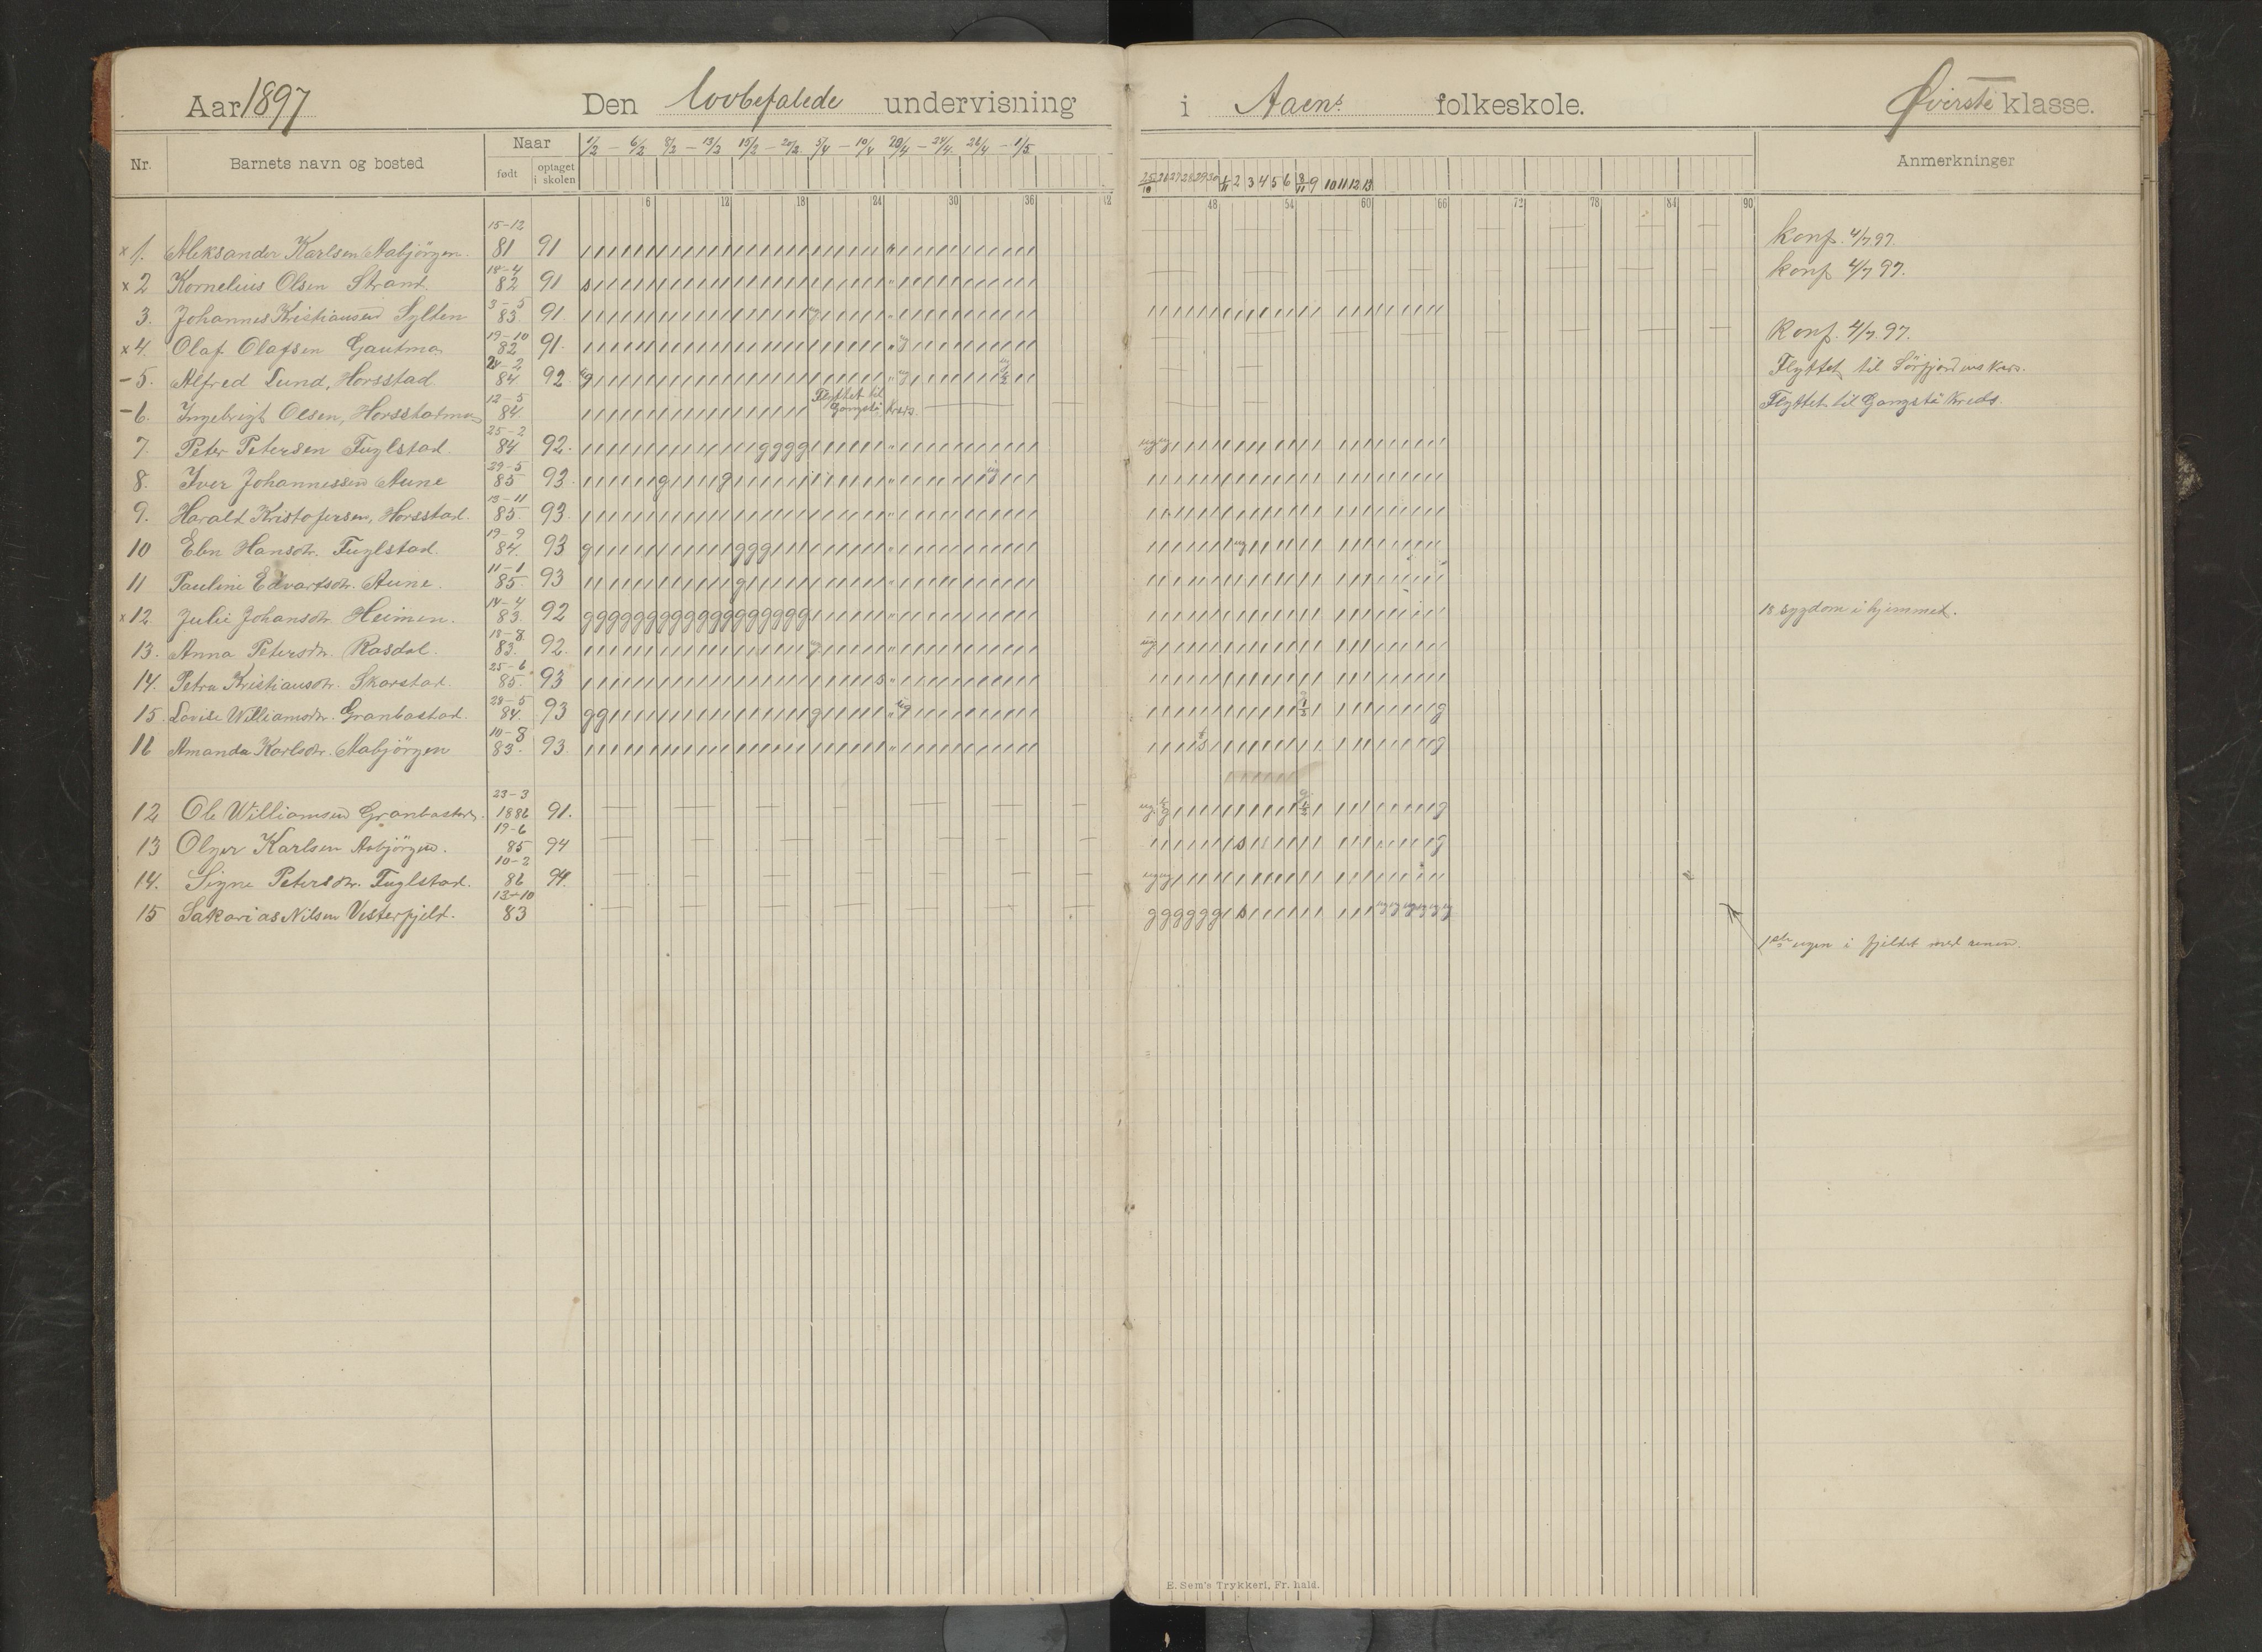 Aar 1897 Den lovbefalede undervisning i Aaens folkeskole. Øverste klasse.
Nr. Barnets navn og bosted Naar født optaget i skolen Anmerkninger
1/2 – 6/2 8/2 – 13/2 15/2 – 20/2 5/4 – 10/4 20/4 – 24/4 26/4 – 1/5
25/10 26 27 28 29 30 1/11 2 3 4 5 6 8/11 9 10 11 12 13
6 12 18 24 30 36 42 48 54 60 66 72 78 84 90
x 1. Aleksander Karlsen Aabjörgen. 15-12 81 91 konf. 4/7 97.
x 2 Kornelius Olsen Strand. 18-4 82 91 konf 4/7 97.
3. Johannes Kristiansen Sylten 3-5 83. 91.
x 4. Olaf Olafsen Gautmo 19-10 82 91. Konf. 4/7. 97.
– 5. Alfred Lund, Horsstad. 24-2 84 92. Flyttet til Sörfjordens kreds.
– 6. Ingebrigt Olsen, Horsstadmo 12-5 84. Flyttet til Gangstö Kreds. Flyttet til Gangstö Kreds.
7. Peter Petersen Fuglstad. 25-2 84 92.
8. Iver Johannessen Aune 29-5 85 93.
9. Harald Kristofersen, Horsstad. 13-11 85. 93.
10 Elen Hansdtr. Fuglstad. 19-9 84. 93
11 Pauline Edvartsdtr. Aune. 11-1 85. 93
x 12. Julie Johansdtr. Heimen. 14-4 83. 92 18 sygdom i hjemmet.
13. Anna Petersdtr. Rosdal. 18-8 83. 92.
14. Petra Kristiansdtr. Skarstad. 25-6 85. 93
15. Lovise Williamsdtr. Granbostad. 28-5 84. 93
16 Amanda Karlsdtr. Aabjörgen 10-8 83. 93.
12 Ole Williamsen Granbostad. 23-3 1886 91.
13 Olger Karlsen Aabjörgen. 19-6 85 94
14. Signe Petersdtr. Fuglstad. 10-2 86 94.
15 Sakarias Nilsen Vesterfjeld. 13-10 83
1ste ugen i fjeldet med renen.
E. Sem's Trykkeri, Fr. hald.